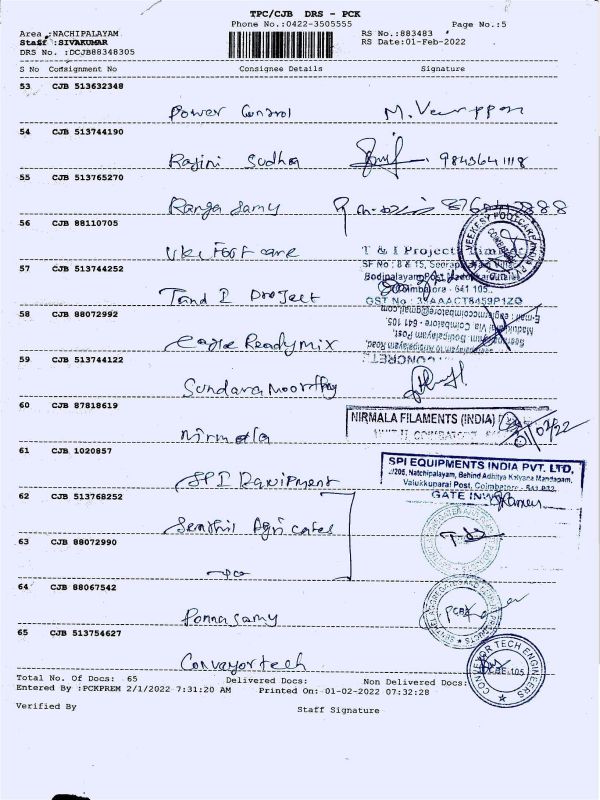 TPC/CJB DRS - PCK
Phone No.:0422-3505555
Page No.:5
Area :NACHIPALAYAM
RS No.:883483
Staff :SIVAKUMAR
RS Date:01-Feb-2022
DRS No. :DCJB88348305
S No Consignment No Consignee Details Signature
53 CJB 513632348
Power Control M. Veerappan
54 CJB 513744190
Rajini Sudha 9843641118
55 CJB 513765270
Ranga Samy
VEEKESY FOOTCARE INDIA
56 CJB 88110705
VKC Foot care T & I Projects Limited
SF No : 8 & 15,
57 CJB 513744252
Bodipalayam Post,
Coimbatore - 641 105.
T and I Project GST No : 33AAACT8459P1ZG
58 CJB 88072992
E-mail : eaglermccoimbatore@gmail.com
Madukkarai Via Coimbatore - 641 105.
Seerapalayam to Arisipalayam Road,
eagle Readymix
59 CJB 513744122
Sundaramoorthy
60 CJB 87818619
NIRMALA FILAMENTS (INDIA)
01/02/22
Nirmala
61 CJB 1020857
SPI EQUIPMENTS INDIA PVT. LTD,
/206, Natchipalayam, Behind Adhitya Kalyana Mandapam,
Valukkuparai Post, Coimbatore - 641 032
SPI Equipment GATE IN
62 CJB 513768252
Senthil Agri cates
63 CJB 88072990
-do-
64 CJB 88067542
Ponnusamy
65 CJB 513754627
Conveyortech
CONVEYOR TECH ENGINEERS
CBE-105
Total No. Of Docs: 65 Delivered Docs: Non Delivered Docs:
Entered By :PCKPREM 2/1/2022 7:31:20 AM Printed On: 01-02-2022 07:32:28
Verified By
Staff Signature